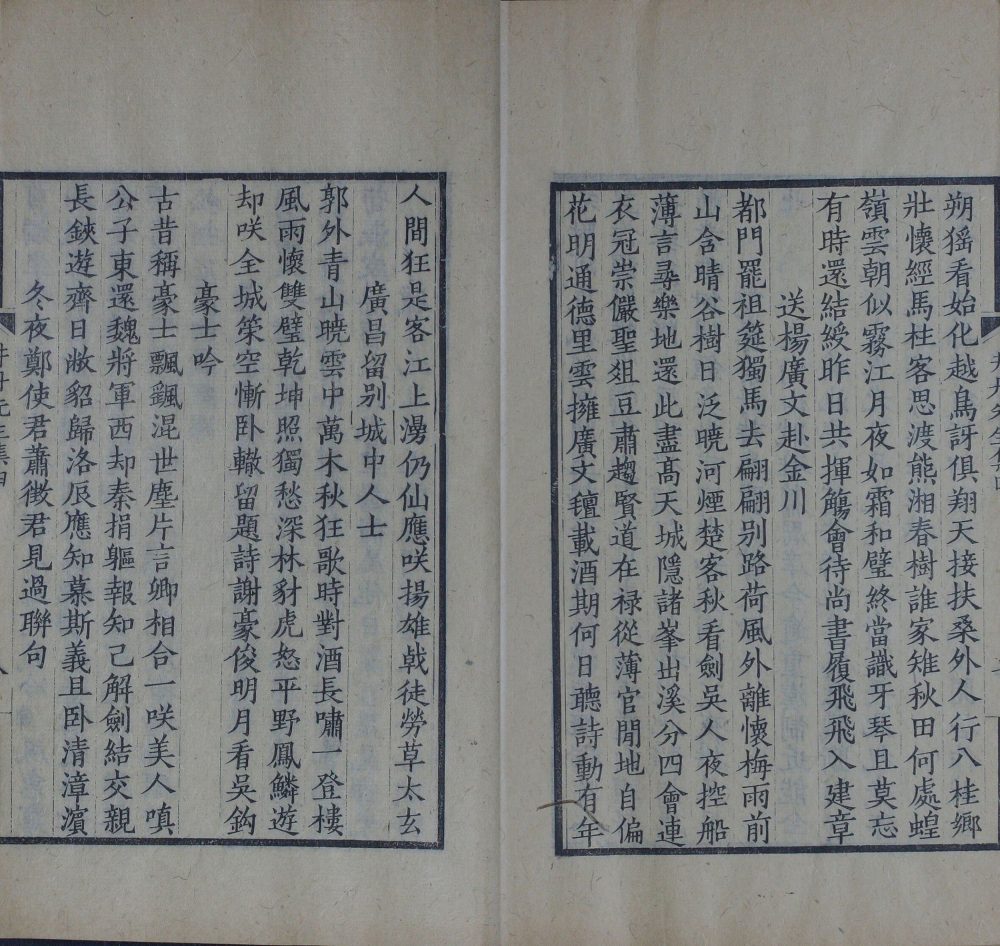 朔猺看始化越鳥訝俱翔天接扶桑外人行八桂鄉
壯懷經馬柱客思渡熊湘春樹誰家雉秋田何處蝗
嶺雲朝似霧江月夜如霜和璧終當識牙琴且莫忘
有時還結綬昨日共揮觴會待尚書履飛飛入建章
送揚廣文赴金川
都門罷祖筵獨馬去翩翩別路荷風外離懷梅雨前
山含晴谷樹日泛曉河煙楚客秋看劍吳人夜控船
薄言尋樂地還此盡高天城隱諸峯出溪分四會連
衣冠崇儼聖俎豆肅趨賢道在祿從薄官閒地自偏
花明通德里雲擁廣文氊載酒期何日聽詩動有年
人間狂是客江上漫仍仙應咲揚雄戟徒勞草太玄
廣昌留别城中人士
郭外青山曉雲中萬木秋狂歌時對酒長嘯一登樓
風雨懷雙璧乾坤照獨愁深林豺虎怒平野鳳鱗遊
却咲全城筞空慚卧轍留題詩謝豪俊明月看吳鈎
豪士吟
古昔稱豪士飄飄混世塵片言卿相合一咲美人嗔
公子東還魏將軍西却秦捐軀報知己解劍結交親
長鋏遊齊日敝貂歸洛辰應知慕斯義且卧清漳濱
冬夜鄭使君蕭徵君見過聯句